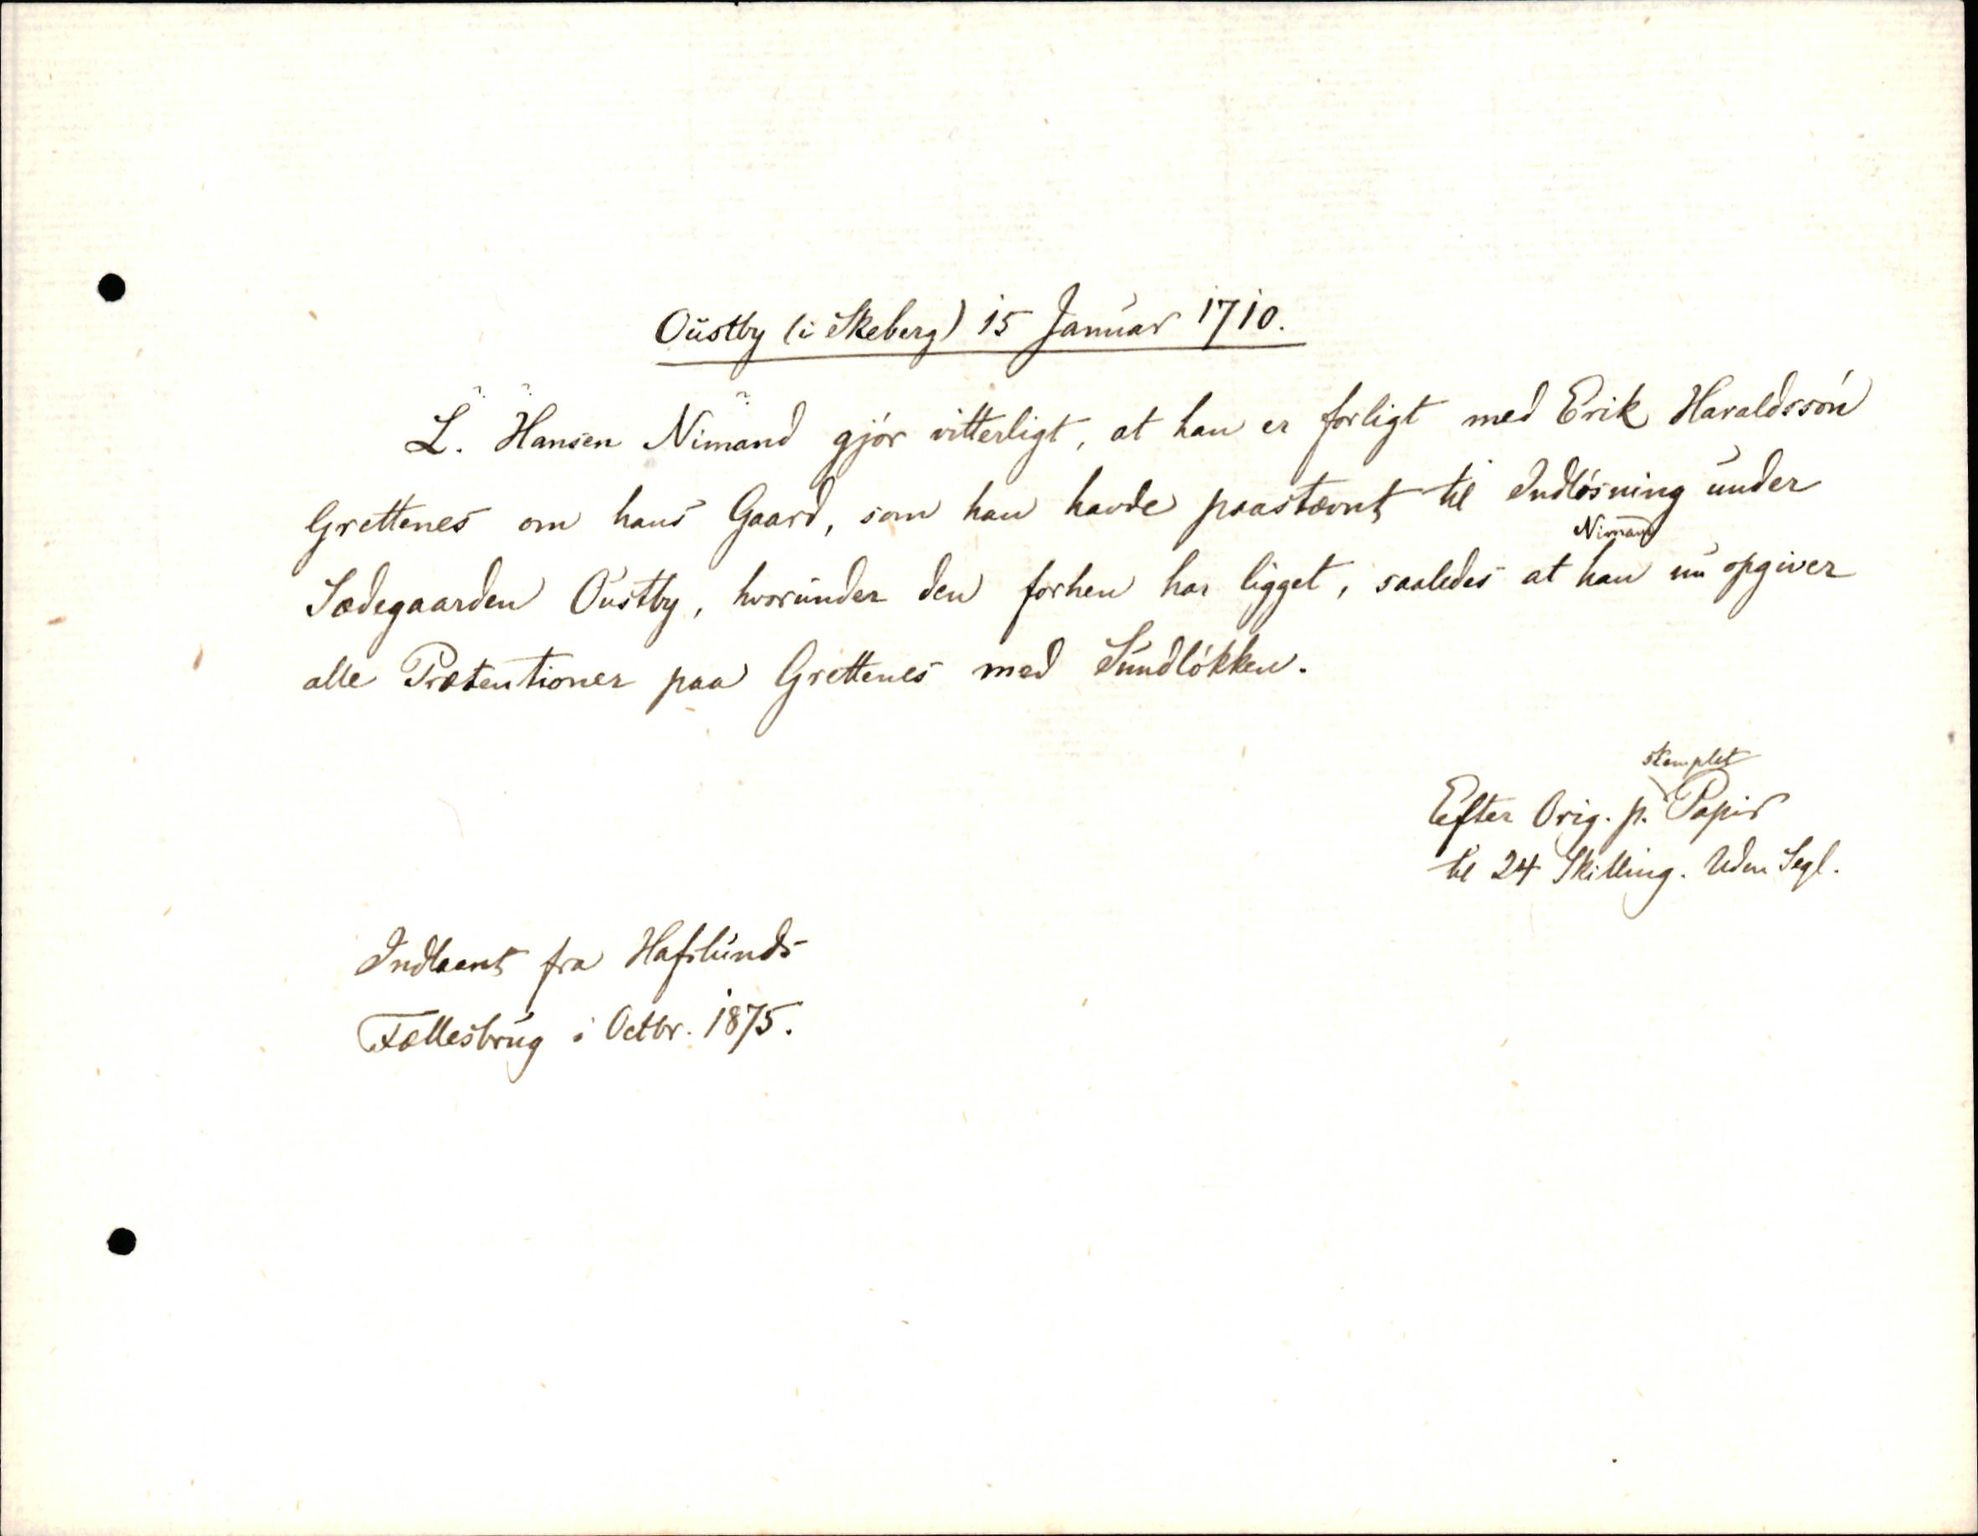 Oustby (i Skeberg) 15 Januar 1710.
L. Hansen Nimand gjør vitterligt, at han er forligt med Erik Haraldssøn
Grettenes om hans Gaard, som han havde paastævnt til Indløsning under
Nimand
Sædegaarden Oustby, hvorunder den forhen har ligget, saaledes at han nu opgiver
alle Prætentioner paa Grettenes med Sundløkken.
stemplet
Efter Orig. p. Papir
til 24 Skilling. Uden Segl.
Indlaant fra Hafslunds
Fællesbrug i Octbr. 1875.